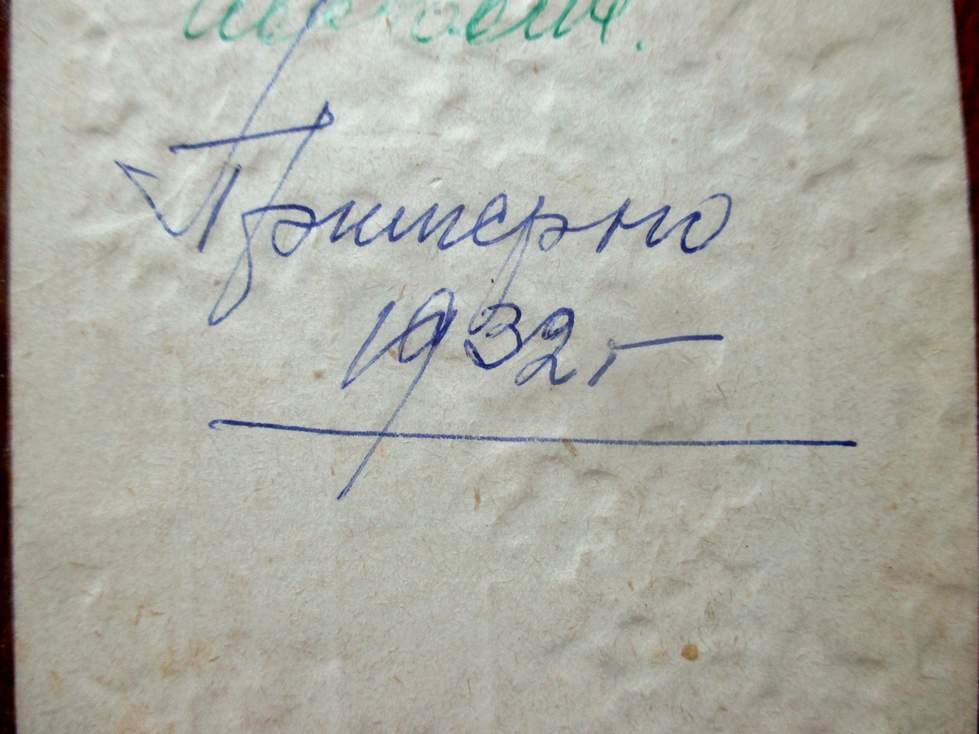 Примерно
1932г